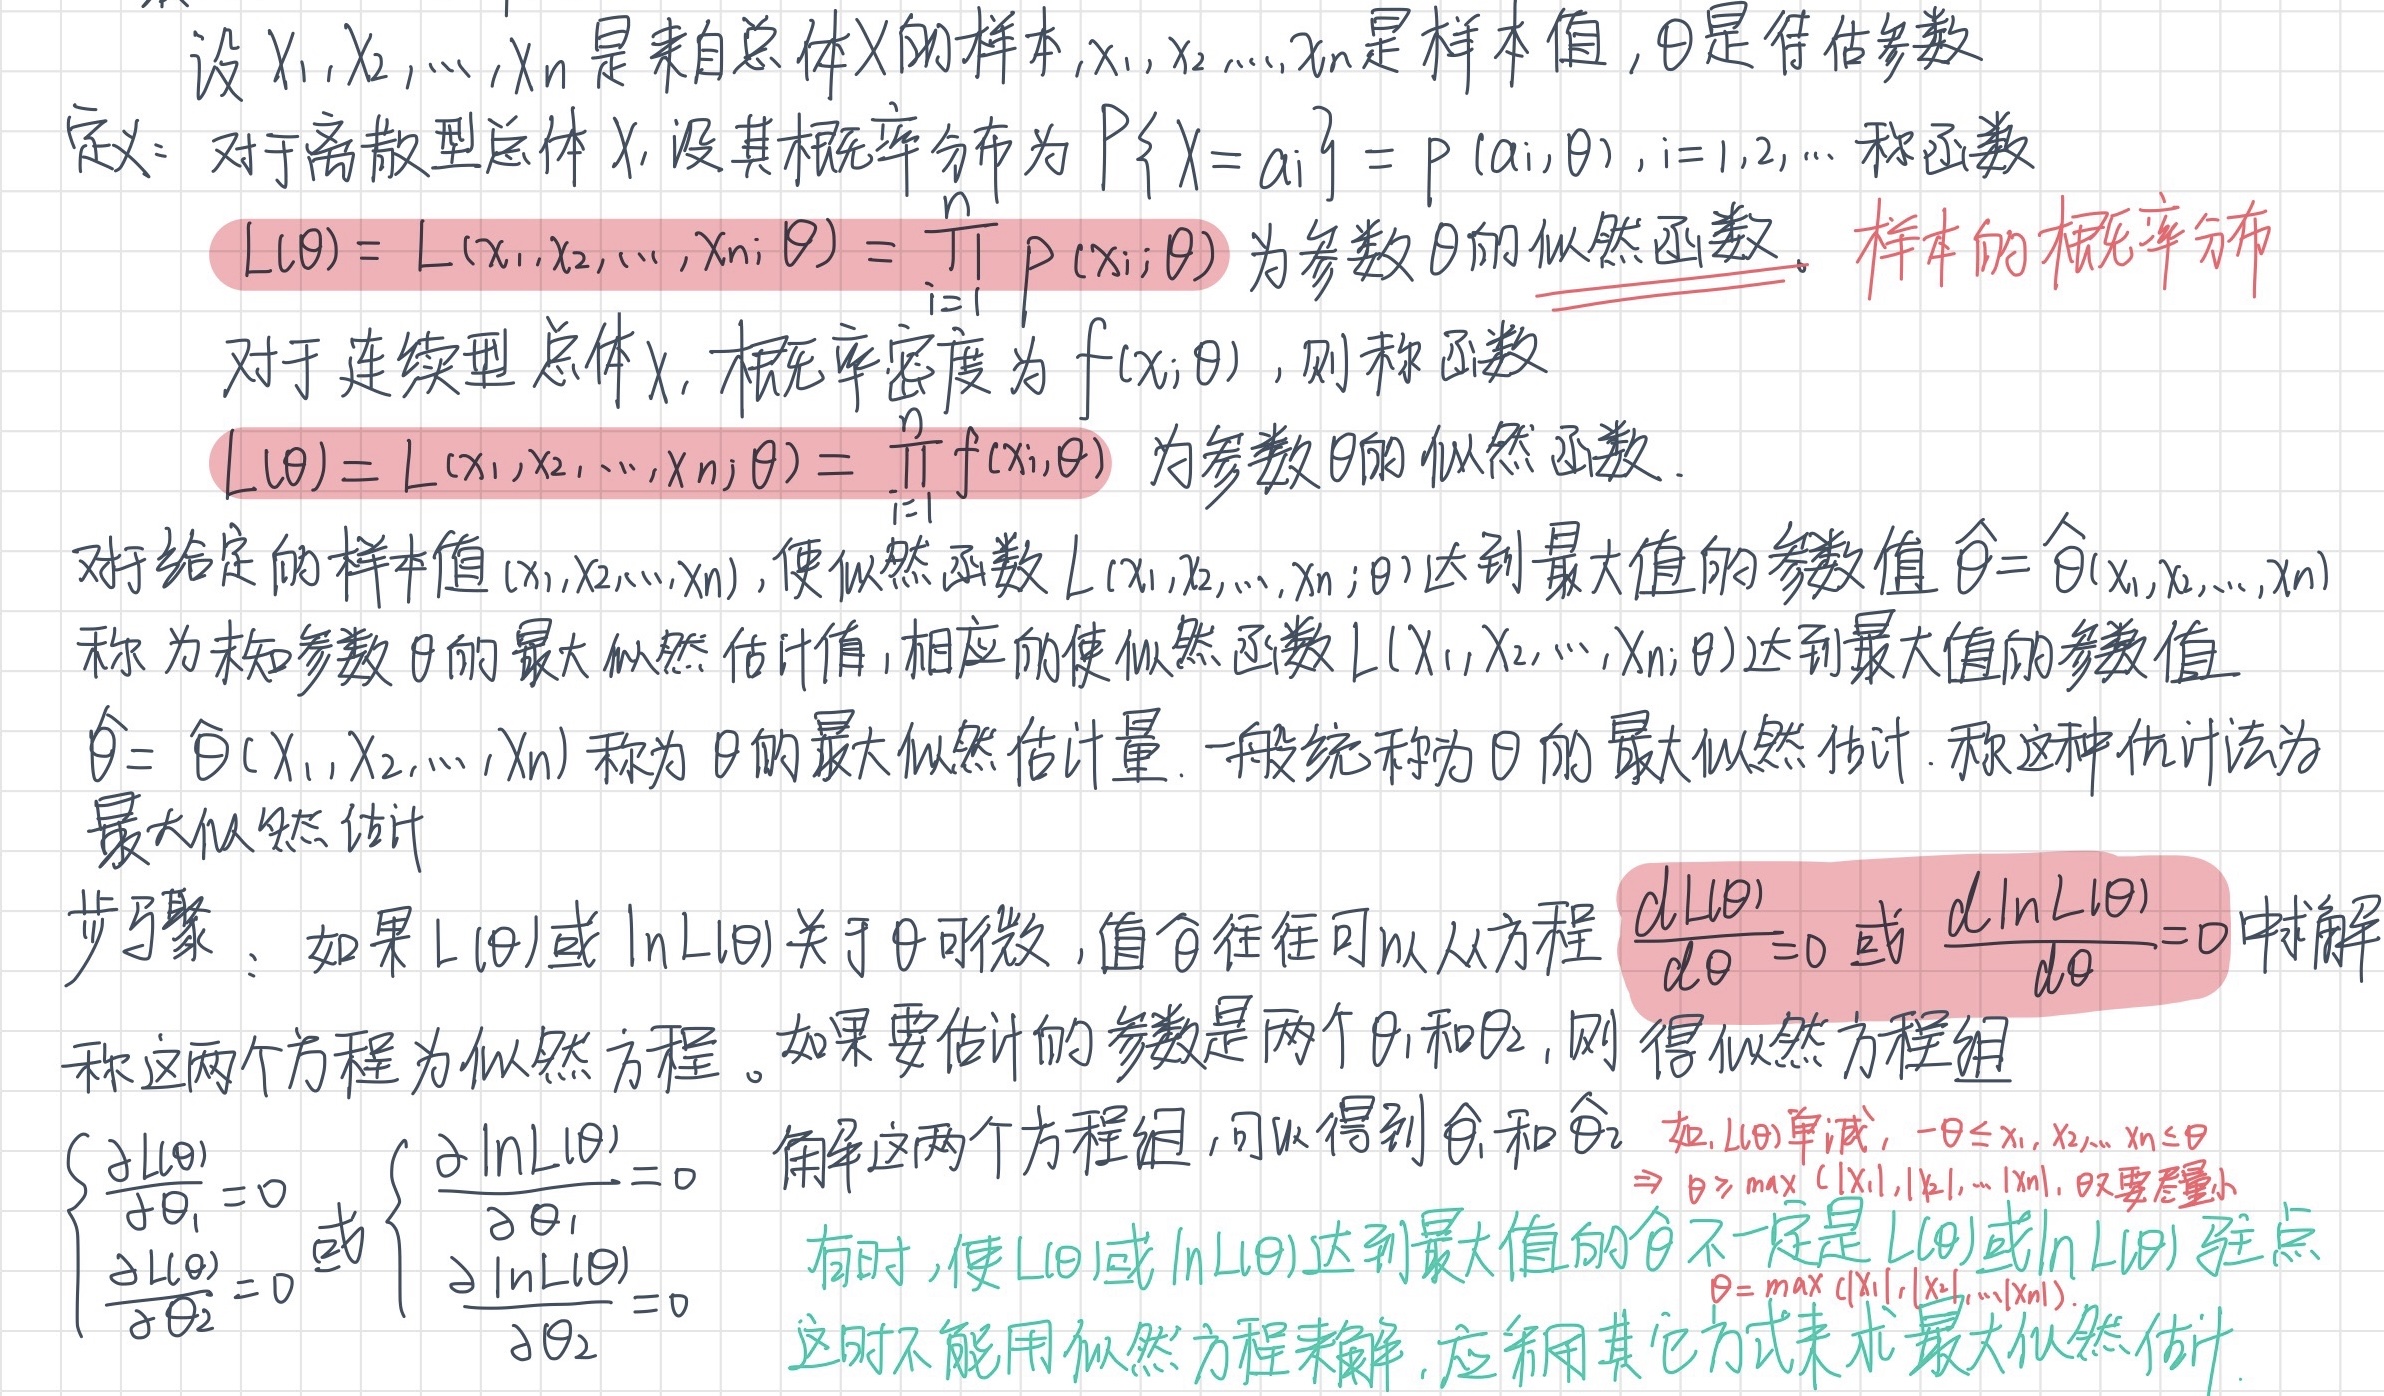 设 X₁, X₂, …, Xn 是来自总体X的样本, x₁, x₂, …, xn是样本值, θ是待估参数
定义: 对于离散型总体 X, 设其概率分布为 P{X = ai} = p(ai; θ), i=1,2,… 称函数
L(θ) = L(x₁, x₂, …, xn; θ) = ∏_{i=1}^{n} p(xi; θ) 为参数θ的似然函数。 样本的概率分布
对于连续型总体X, 概率密度为 f(x; θ), 则称函数
L(θ) = L(x₁, x₂, …, xn; θ) = ∏_{i=1}^{n} f(xi; θ) 为参数θ的似然函数.
对于给定的样本值(x₁, x₂, …, xn), 使似然函数L(x₁, x₂, …, xn; θ)达到最大值的参数值 θ̂ = θ̂(x₁, x₂, …, xn)
称为未知参数θ的最大似然估计值, 相应的使似然函数L(X₁, X₂, …, Xn; θ)达到最大值的参数值
θ̂ = θ̂(X₁, X₂, …, Xn)称为θ的最大似然估计量. 一般统称为θ的最大似然估计. 称这种估计法为
最大似然估计
步骤: 如果L(θ)或 lnL(θ)关于θ可微, 值θ̂往往可以从方程 dL(θ)/dθ=0 或 dlnL(θ)/dθ=0 中求解
称这两个方程为似然方程。如果要估计的参数是两个θ₁和θ₂, 则得似然方程组
{∂L(θ)/∂θ₁=0 ∂L(θ)/∂θ₂=0 或 {∂lnL(θ)/∂θ₁=0 ∂lnL(θ)/∂θ₂=0
解这两个方程组, 可以得到θ̂₁和θ̂₂
如, L(θ)单减, -θ≤x₁, x₂, … xn≤θ
⇒ θ≥max(|X₁|, |X₂|, … |Xn|, θ又要尽量小
有时, 使L(θ)或 lnL(θ)达到最大值的θ̂不一定是L(θ)或lnL(θ)驻点
θ=max(|X₁|, |X₂|, … |Xn|).
这时不能用似然方程来解, 应采用其它方式来求最大似然估计.